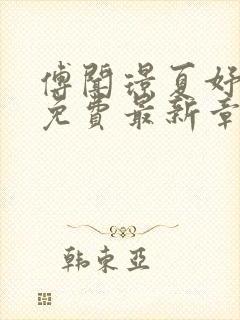 傅闻璟夏好
免费最新章
韩东亚